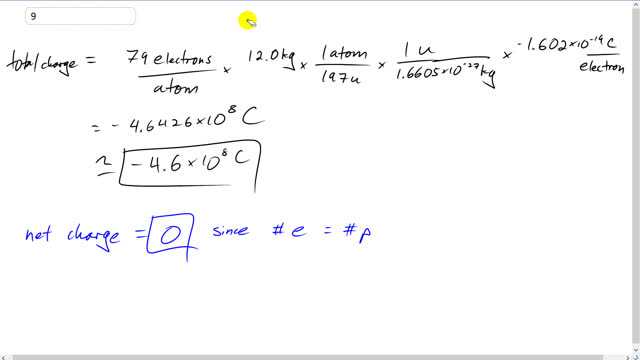 9
total charge = 79 electrons/atom × 12.0 kg × 1 atom/197 u × 1 u/1.6605×10⁻²⁷ kg × -1.602×10⁻¹⁹ C/electron
= -4.6426×10⁸ C
≃ -4.6×10⁸ C
net charge = 0 since #e = #p